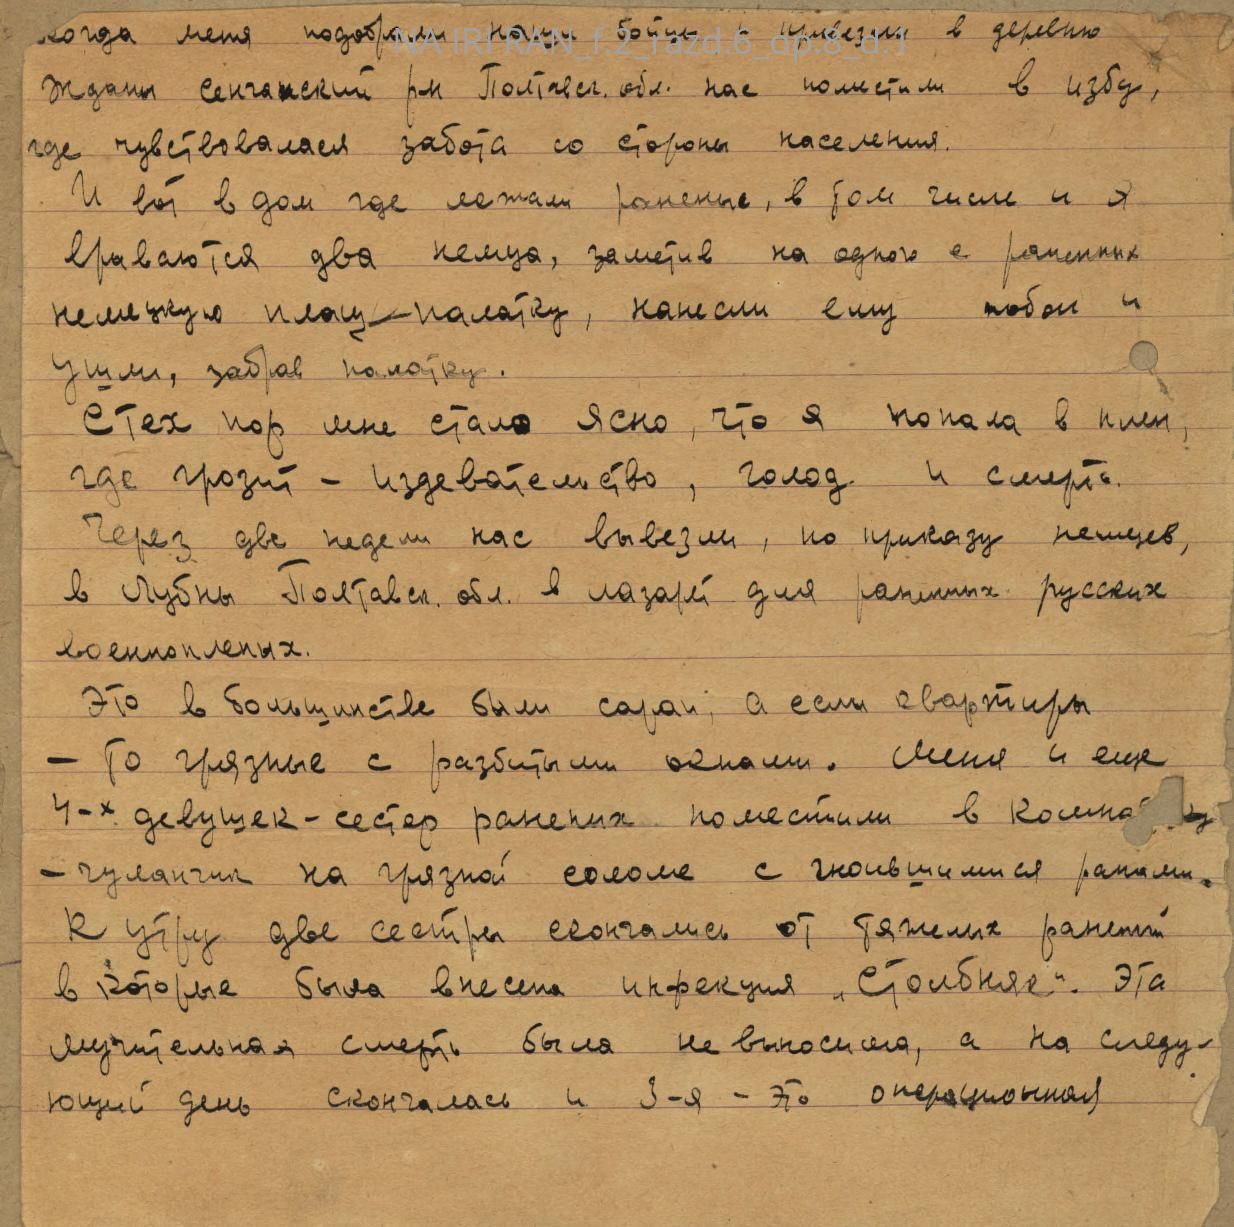 когда меня подобрали наши бойцы и привезли в деревню
NA IRI RAN_f.2_razd.6_op.8_d.1
Жданы Сенчанский рн Полтавск. обл. нас поместили в избу,
где чувствовалася забота со стороны населения.
И вот в дом где лежали раненые, в том числе и я
врываются два немца, заметив на одного с раненных
немецкую плащ-палатку, нанесли ему побои и
ушли, забрав палатку.
С тех пор мне стало ясно, что я попала в плен,
где грозит - издевательство, голод и смерть.
Через две недели нас вывезли, по приказу немцев,
в Лубны Полтавск. обл. в лазарет для раненных русских
военнопленых.
Это в большинстве были сараи, а если квартиры
- то грязные с разбитыми окнами. Меня и еще
4-х девушек-сестер раненых поместили в комнатку
- чуланчик на грязной соломе с гноившимися ранами.
К утру две сестры скончались от тяжелых ранений
в которые была внесена инфекция „Столбняк". Эта
мучительная смерть была невыносима, а на следу-
ющий день скончалась и 3-я - это операционная